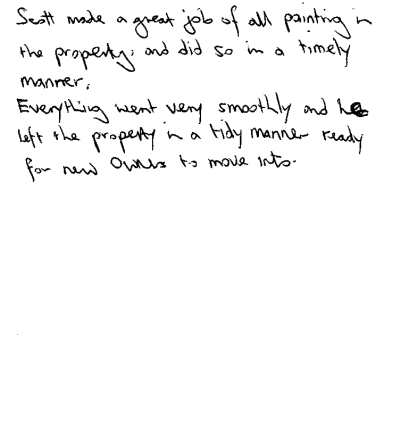 Scott made a great job of all painting in
the property, and did so in a timely
manner.
Everything went very smoothly and he
left the property in a tidy manner ready
for new owners to move into.